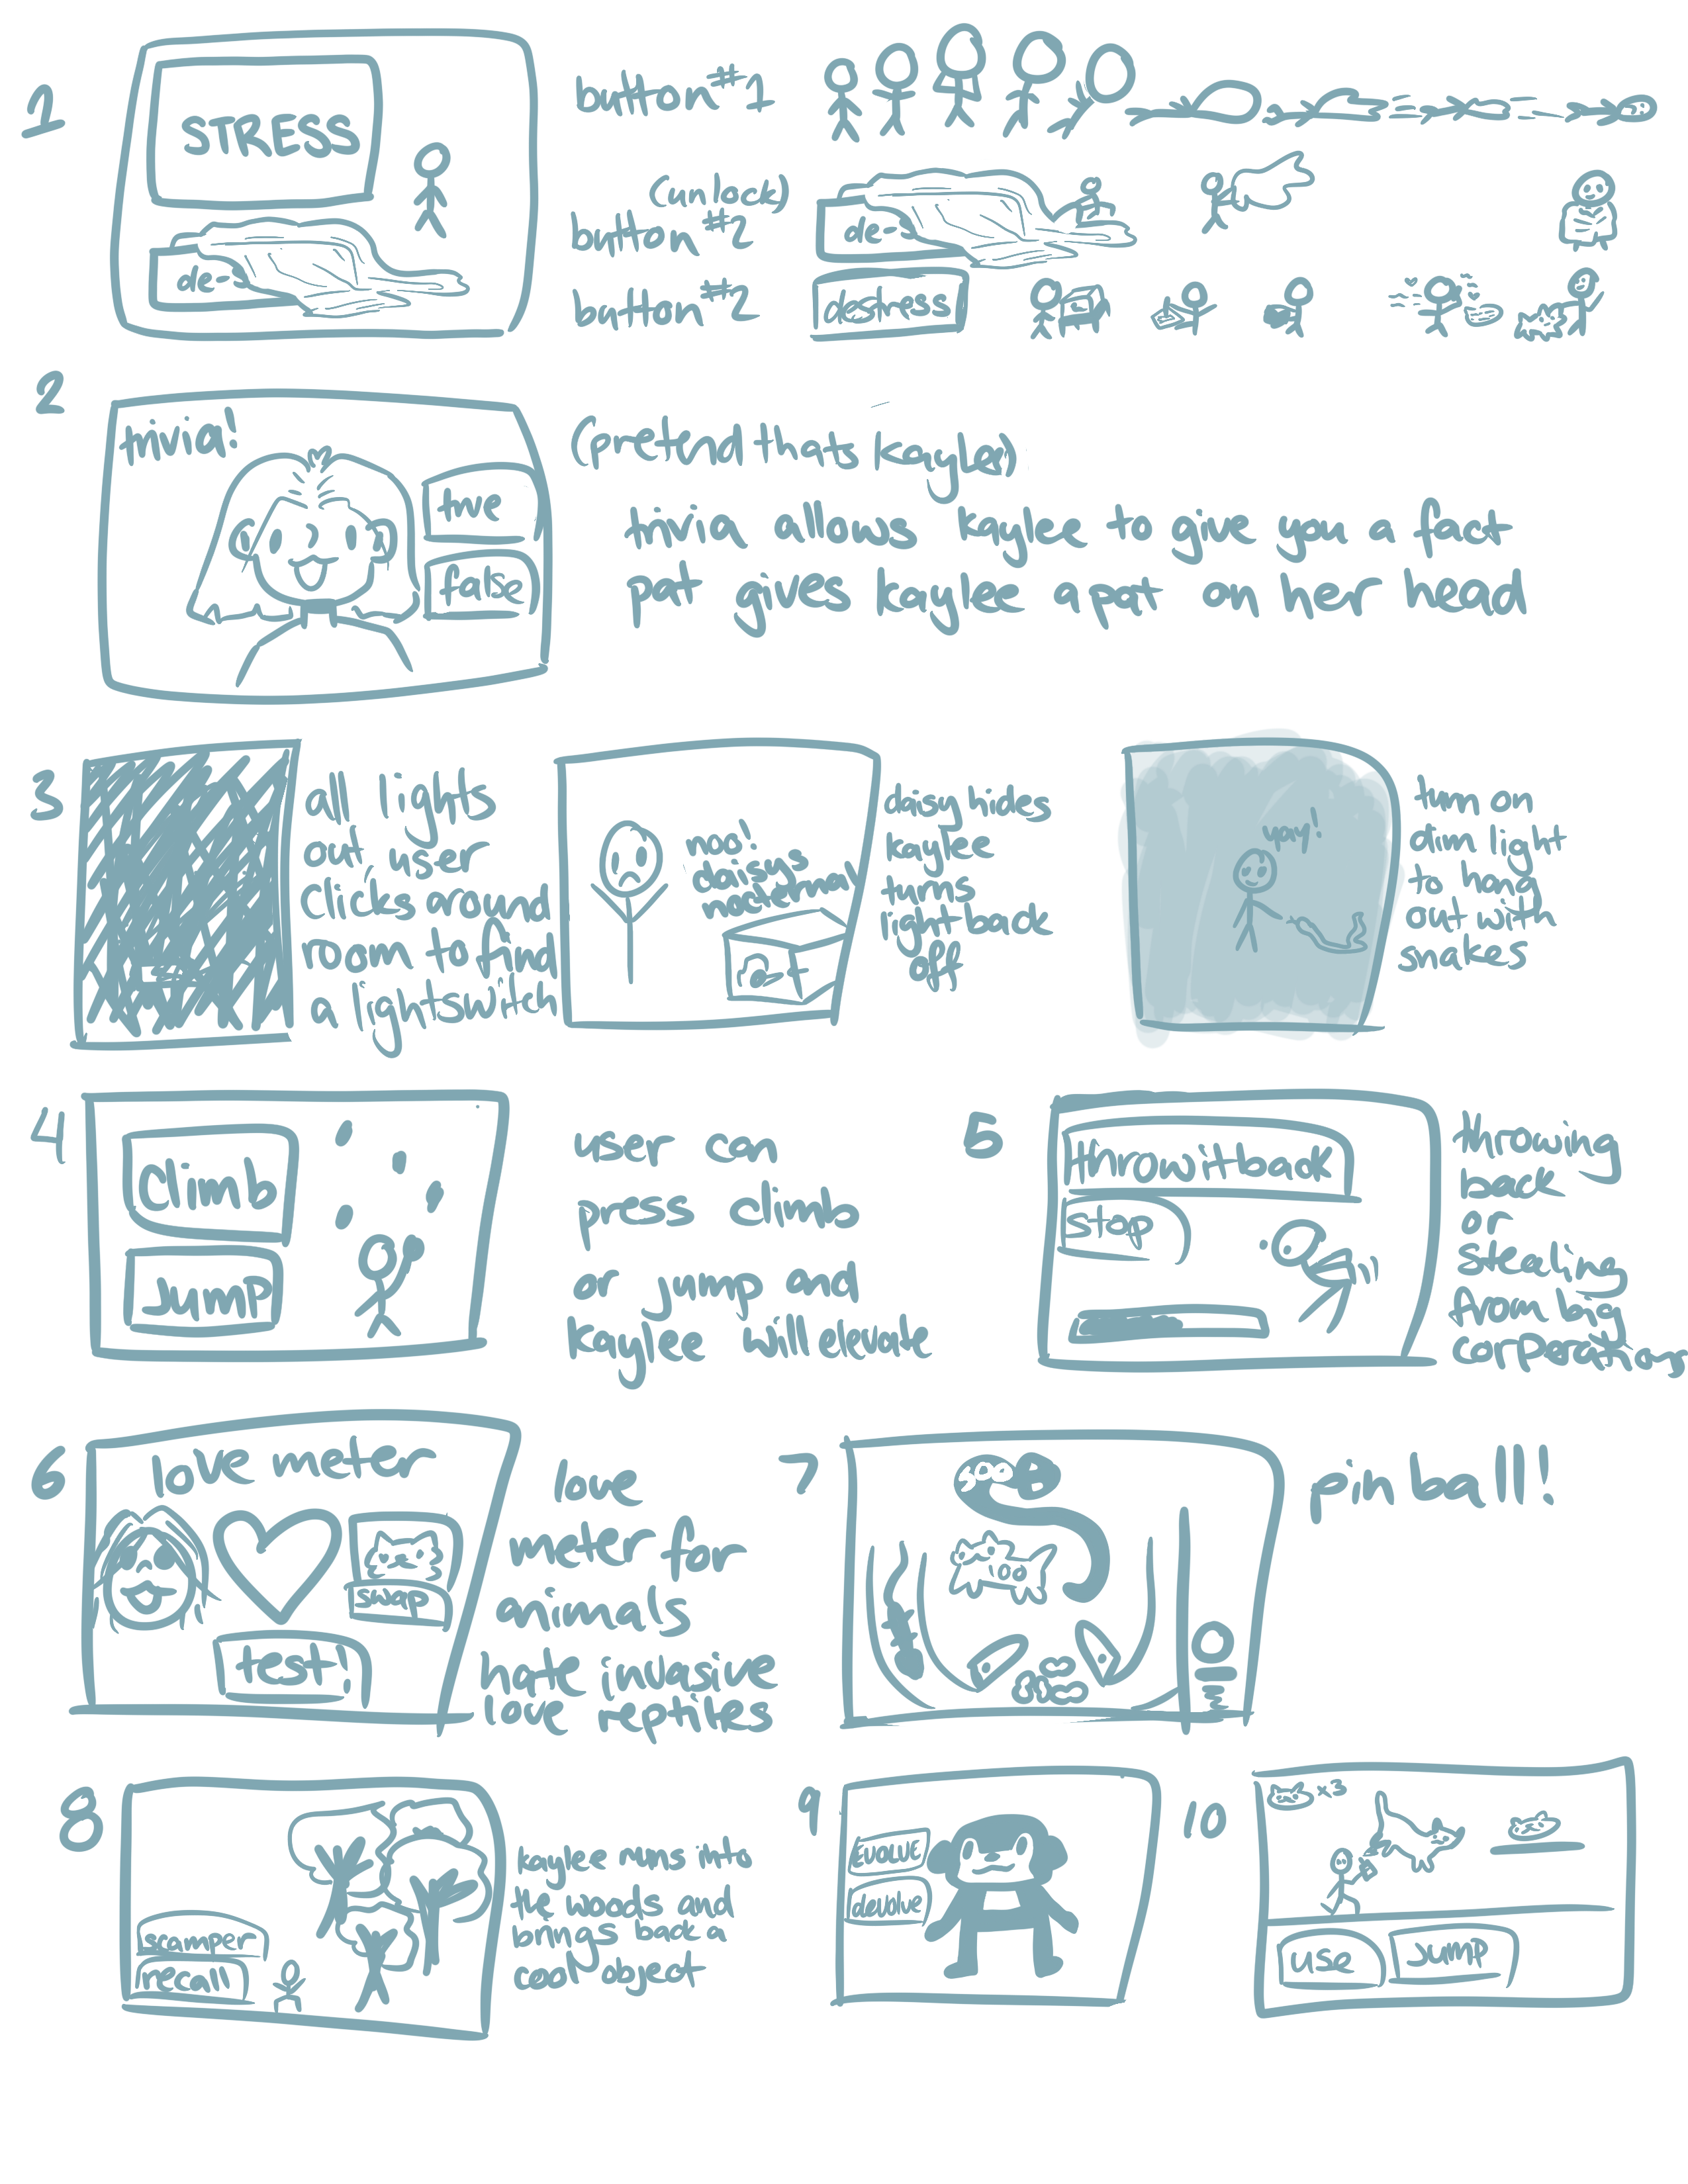 1
STRESS
de-s
button #1
(unlock)
button #2
de-s
button #2
destress
2
trivia!
true
false
(pretend thats kaylee)
trivia allows kaylee to give you a fact
pat gives kaylee a pat on her head
3
all lights
out, user
clicks around
room to find
a lightswitch
noo!
daisys
nocternal
daisy hides
kaylee
turns
light back
off
yay!
turn on
dim light
to hang
out with
snakes
4
climb
jump
user can
press climb
or jump and
kaylee will elevate
5
throwitback
stop
throwing
back
or
stealing
from big
corporations
6
love meter
swap
test!
love
meter for
animals
hate invasive
love reptiles
7
100
pinball!
8
scamper
recall
kaylee runs into
the woods and
brings back a
cool object
9
EVOLVE
devolve
10
x3
use
jump